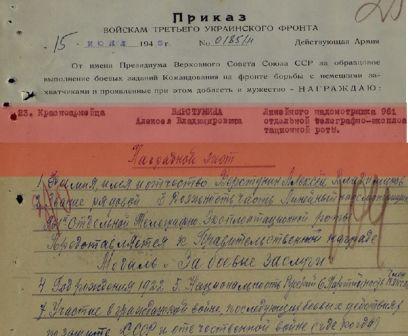 Приказ
ВОЙСКАМ ТРЕТЬЕГО УКРАИНСКОГО ФРОНТА
15 июля 1945г. No. 0185/н Действующая Армия
От имени Президиума Верховного Совета Союза ССР за образцовое
выполнение боевых заданий Командования на фронте борьбы с немецкими за-
хватчиками и проявленные при этом доблесть и мужество – НАГРАЖДАЮ:
23. Красноармейца ВЕРСТУНИНА Линейного надсмотрщика 961
Алексея Владимировича отдельной телеграфно-эксплоа
тационной роты.
Наградной лист
1. Фамилия, имя и отчество Верстунин Алексей Владимирович
2. Звание рядовой 3. Должность, часть Линейный надсмотрщик
961 Отдельной Телеграфно Эксплоатационной роты
Представляется к Правительственной награде
Медаль "За боевые заслуги"
4. Год рождения 5. Национальность Русский 6. Партийность
7. Участие в гражданской войне, последующих боевых действиях
по защите СССР и отечественной войне (где, когда)